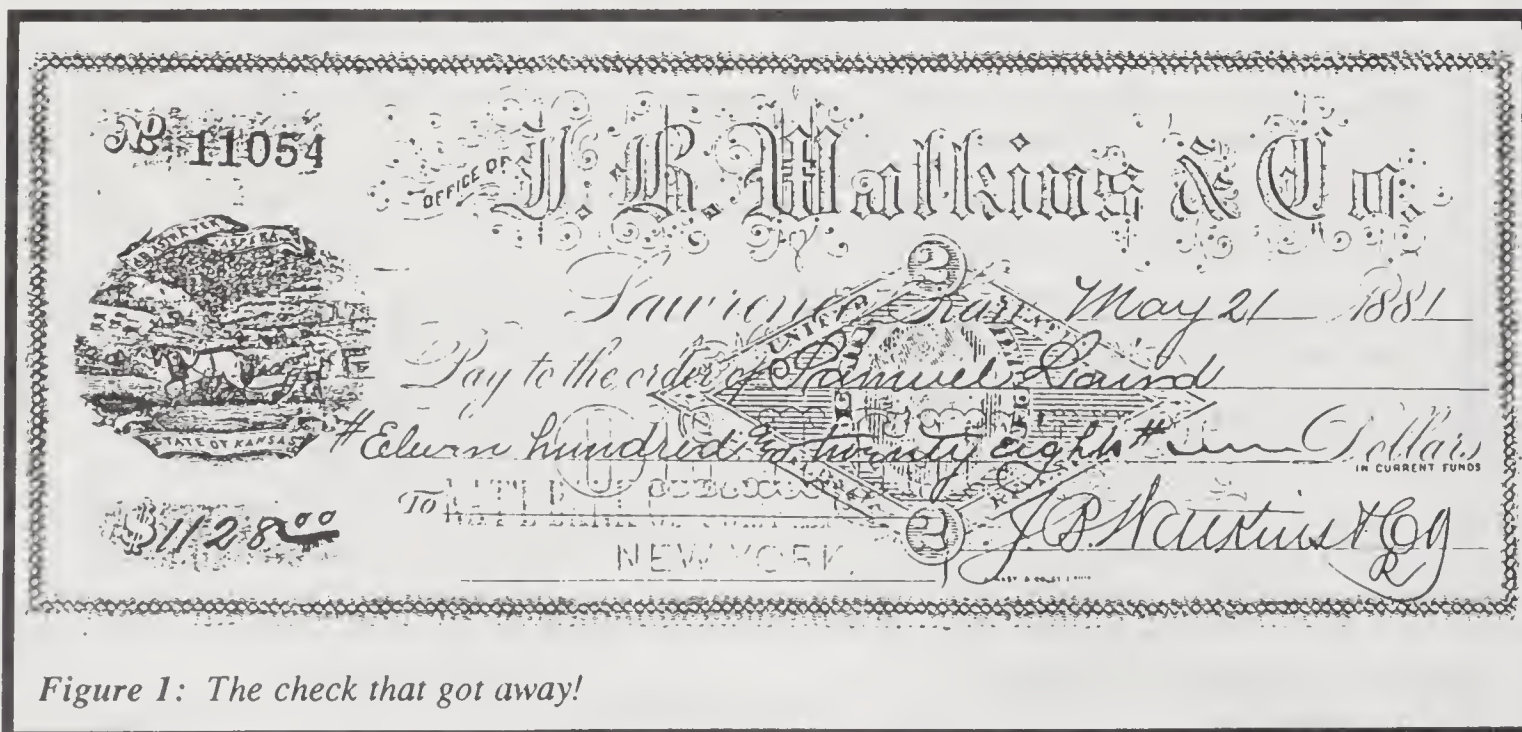 No 11054
OFFICE OF J. B. Watkins & Co.
AD ASTRA PER ASPERA
Lawrence, Kan. May 21 1881
Pay to the order of Samuel Laird
# Eleven hundred & twenty eight # Dollars
IN CURRENT FUNDS
STATE OF KANSAS
To
NEW YORK.
$1128 00
J. B. Watkins & Co
R
2
2
UNITED
Figure 1: The check that got away!